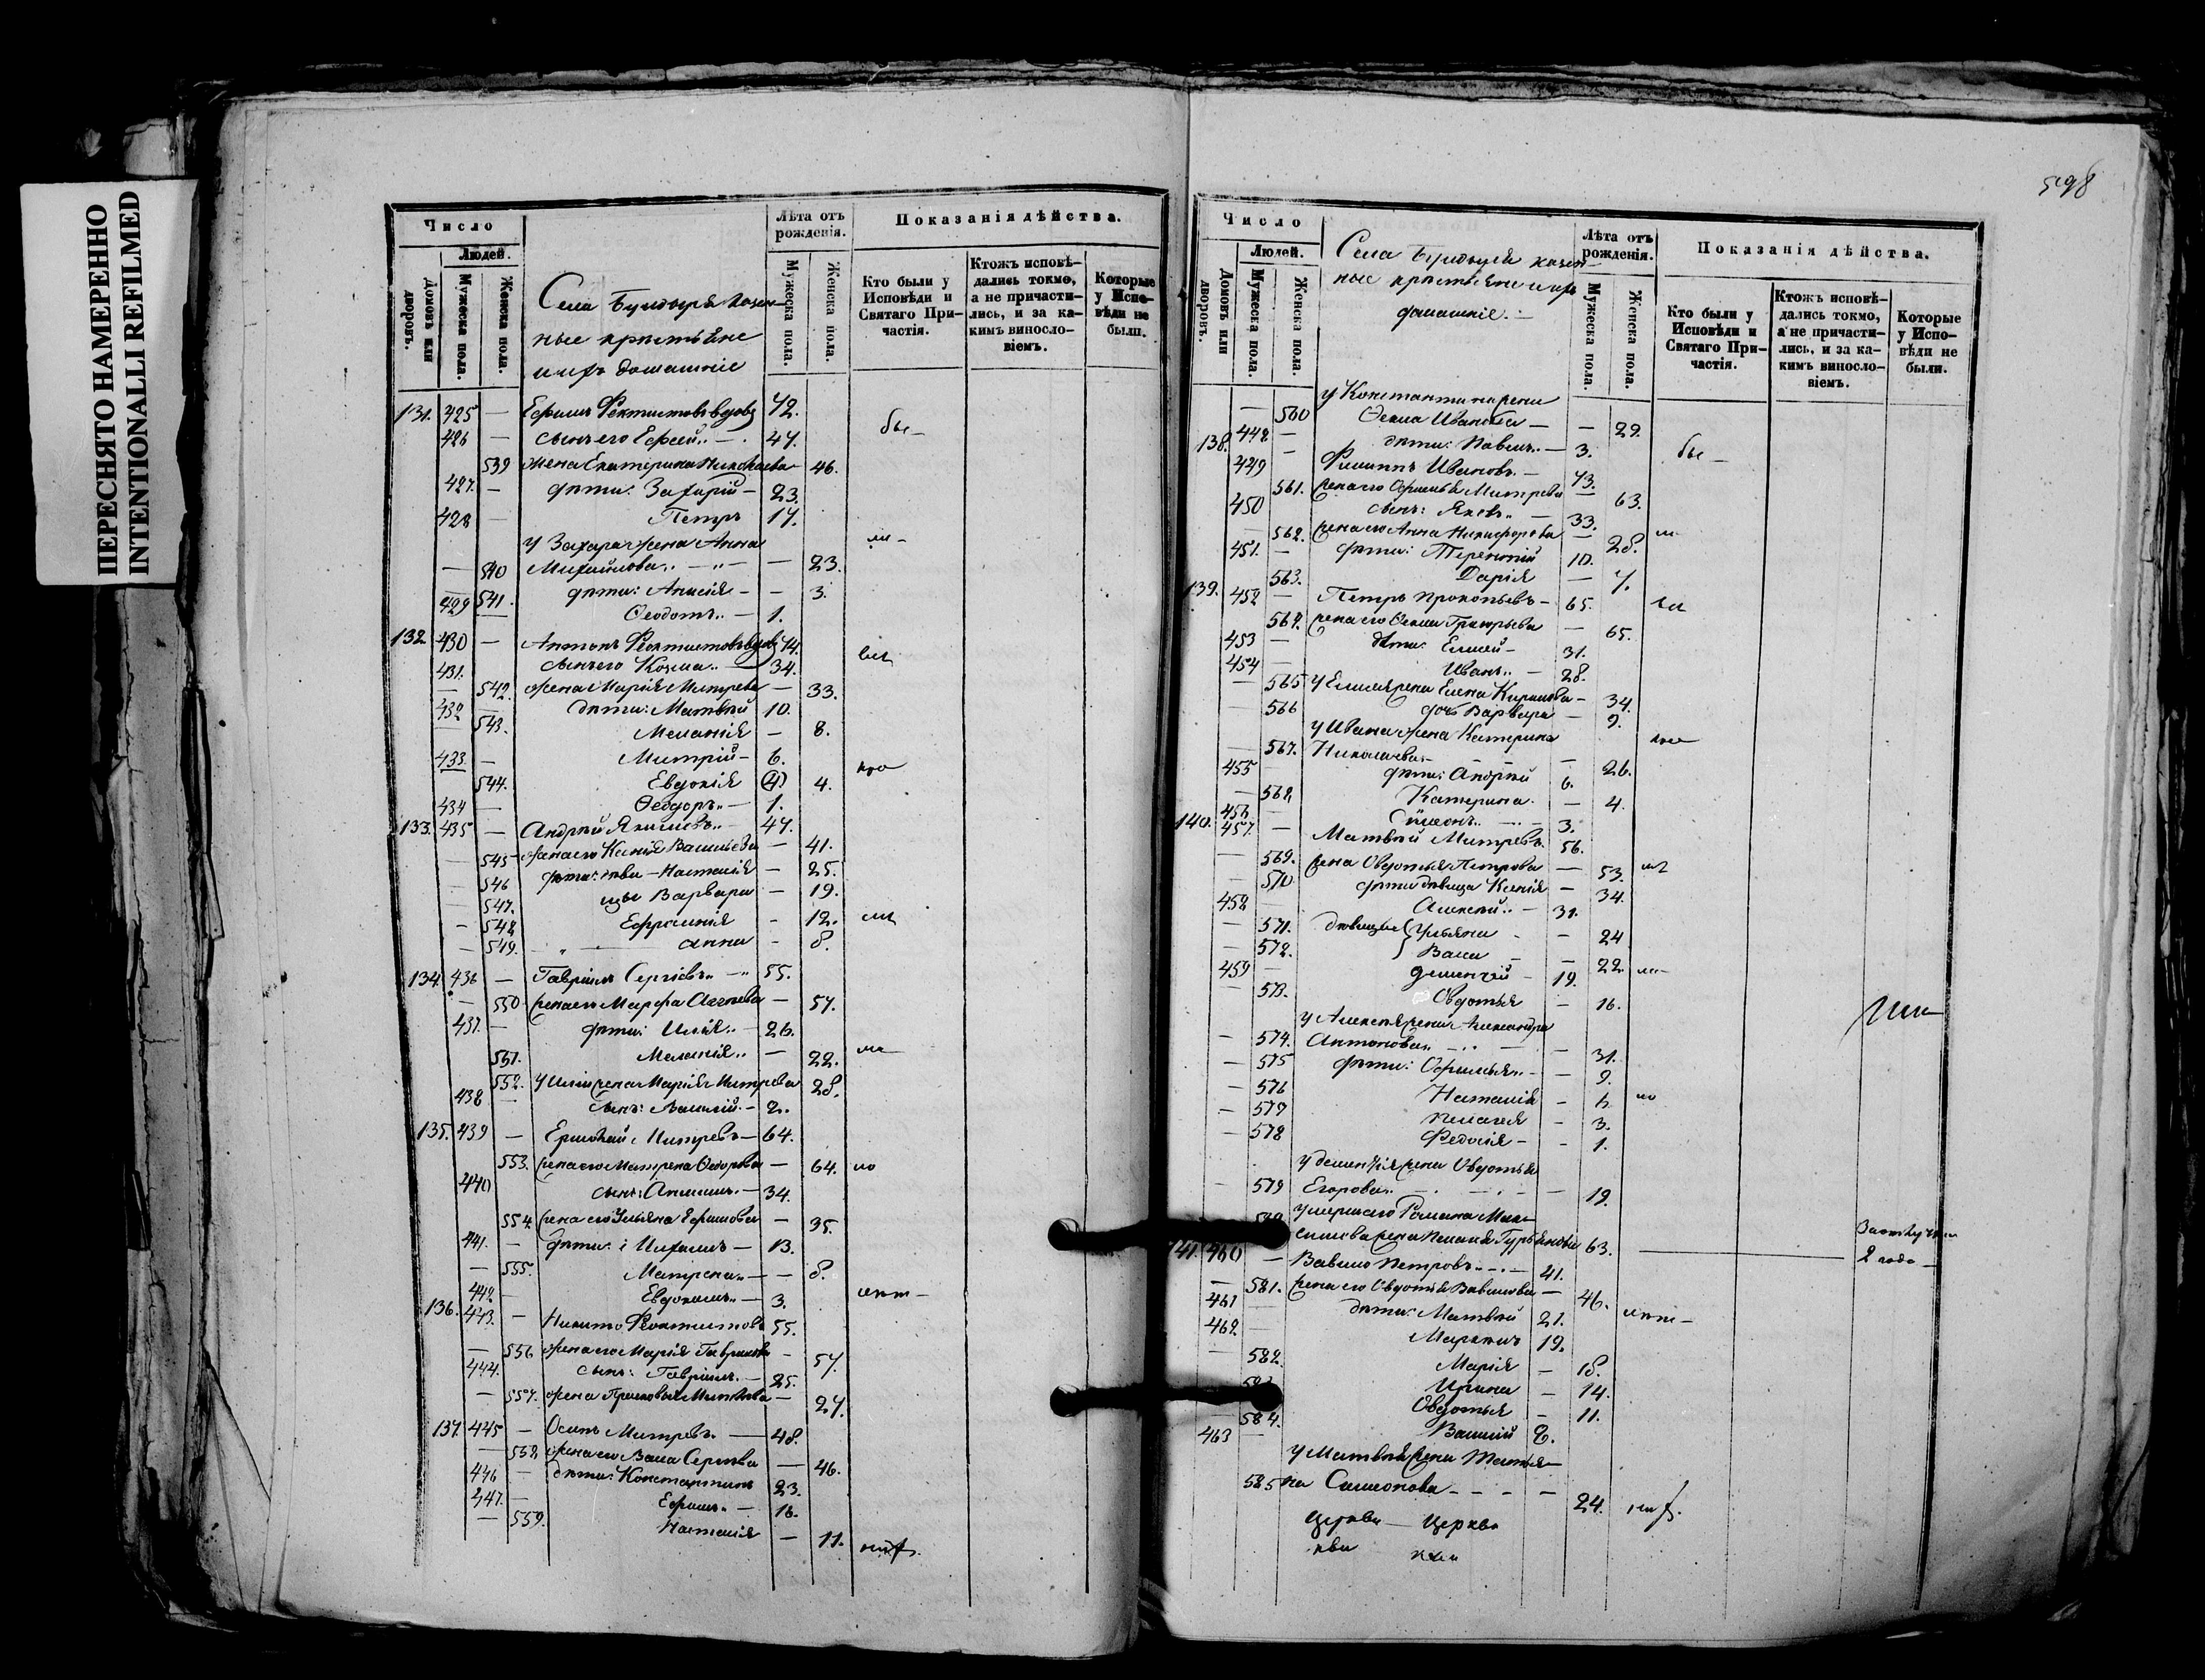 ПЕРЕСНЯТО НАМЕРЕННО
INTENTIONALLI REFILMED
598
Число
Людей.
Домовъ или дворовъ.
Мужеска пола.
Женска пола.
Села Бундыря казен-
ные крестьяне
и ихъ домашніе
Лѣта отъ рожденія.
Мужеска пола.
Женска пола.
Показанія дѣйства.
Кто были у Исповѣди и Святаго При-частія.
Ктожъ исповѣ-дались токмо, а не причасти-лись, и за ка-кимъ винослo-віемъ.
Которые у Испо-вѣди не были.
131. 425 — Ефимъ Феоктистовъ вдовъ 72.
426 — сынъ его Ефрем.. — 47. бы —
539 жена Екатерина Николаева 46.
427. — дѣти: Захарій — 23.
428 — Петръ 17.
у Захара жена Анна
— 540 Михайлова.. — — 23.
541. дѣти: Анисія — — 3.
429 — Ѳеодотъ.. — 1.
132 430 — Антонъ Феоктистовъ вдовъ 74.
431. сынъ его Козма.. — 34.
— 542. жена Марія Митрева — 33.
432 — дѣти: Матвѣй 10.
543. Меланія — 8.
433 — Митрій — 6.
544. Евдокія 4.
434 — Ѳеодоръ.. — 1.
133. 435 — Андрей Якимовъ.. — 47.
— 545 жена его Ксенія Васильева — 41.
— 546 дѣти: дѣви — Наталія — 25.
— 547. цы Варвара — 19.
— 548 Ефросинія — 12.
— 549. Анна — 8.
134 436 — Гавріилъ Сергіевъ.. — 55.
— 550 жена его Марфа — 57.
437. — дѣти: Илія.. — 26.
551. Меланія.. — 22.
552. у Иліи жена Марія Митрева 28.
438 — сынъ: Василій — 2.
135. 439 — Ермолай Митревъ — 64.
553. жена его Матрена Ѳедорова — 64.
440 сынъ: — 34.
554. жена его Ульяна Ефимова — 35.
441. — дѣти: Михаилъ — 13.
— 555. Матрена.. — — 8.
442 — Евдокимъ.. — 3.
136. 443. — Никита Феоктистовъ 55.
— 556 жена его Марія Гаврилова — 57.
444. сынъ: Гавріилъ. — 25.
— 557. жена Прасковья Матвѣева — 27.
137. 445 — Осипъ Митревъ. — 48.
— 558 жена его Васа Сергѣева — 46.
446 — дѣти: Константинъ 23.
447. — Ефимъ.. — 16.
— 559. Наталія — 11.
Число
Людей.
Домовъ или дворовъ.
Мужеска пола.
Женска пола.
Села Бундыря казен-
ные крестьяне и ихъ
домашніе. —
Лѣта отъ рожденія.
Мужеска пола.
Женска пола.
Показанія дѣйства.
Кто были у Исповѣди и Святаго При-частія.
Ктожъ исповѣ-дались токмо, а не причасти-лись, и за ка-кимъ винослo-віемъ.
Которые у Испо-вѣди не были.
у Константина жена
— 560 Ѳекла Иванова — — 22.
448. — дѣти: Павелъ.. — 3. бы —
138. 449 — Филиппъ Ивановъ. — 73.
561. жена его Офимья Митрева — 63.
450 сынъ: Яковъ.. — 33.
— 562. жена его Анна Никифорова — 28.
451. — дѣти: Терентій 10.
563. Дарія — 7.
139. 452 — Петръ Прокопьевъ — 65.
564. жена его Ѳекла Григорьева — 65.
453 — дѣти: Елисей — 31.
454 — Иванъ.. — 28.
— 565 у Елисея жена Елена Кирилова — 34.
— 566 дочь Варвара — 9.
у Ивана жена Катерина
— 567. Николаева.. — — 26.
455 дѣти: Андрей 6.
— 568 Катерина. — 4.
456 — Симеонъ.. — 3.
140. 457. — Матвѣй Митревъ 56.
— 569. жена Овдотья Петрова — 53.
— 570 дѣти дѣвица Ксенія — 34.
458 — Алексѣй.. — 31.
— 571. дѣвицы Ульяна — 24
— 572. Васа — 22.
459 — Дементій — 19.
— 573. Овдотья — 16.
у Алексѣя жена Александра
— 574. Антонова.. — — 31.
— 575 дѣти: Офимья.. — — 9.
— 576 Наталія —
— 577 Пелагея — 3.
— 578 Федосія — — 1.
у Дементія жена Овдотья
— 579 Егорова.. — 19.
умершаго Романа Мак-
симова жена Пелагея Гурьянова 63. За отлучкой 2 года —
141. 460 — Вавило Петровъ.. — 41.
— 581. жена его Овдотья Вавилова — 46.
461 — дѣти: Матвѣй 21.
462. — Маркелъ 19.
— 582. Марія — 18.
Ирина — 14.
— 584. Овдотья — 11.
463 — Василій 8.
у Матвѣя жена Татья-
585 на Симонова — — — 24.
церкви — церкви
кви